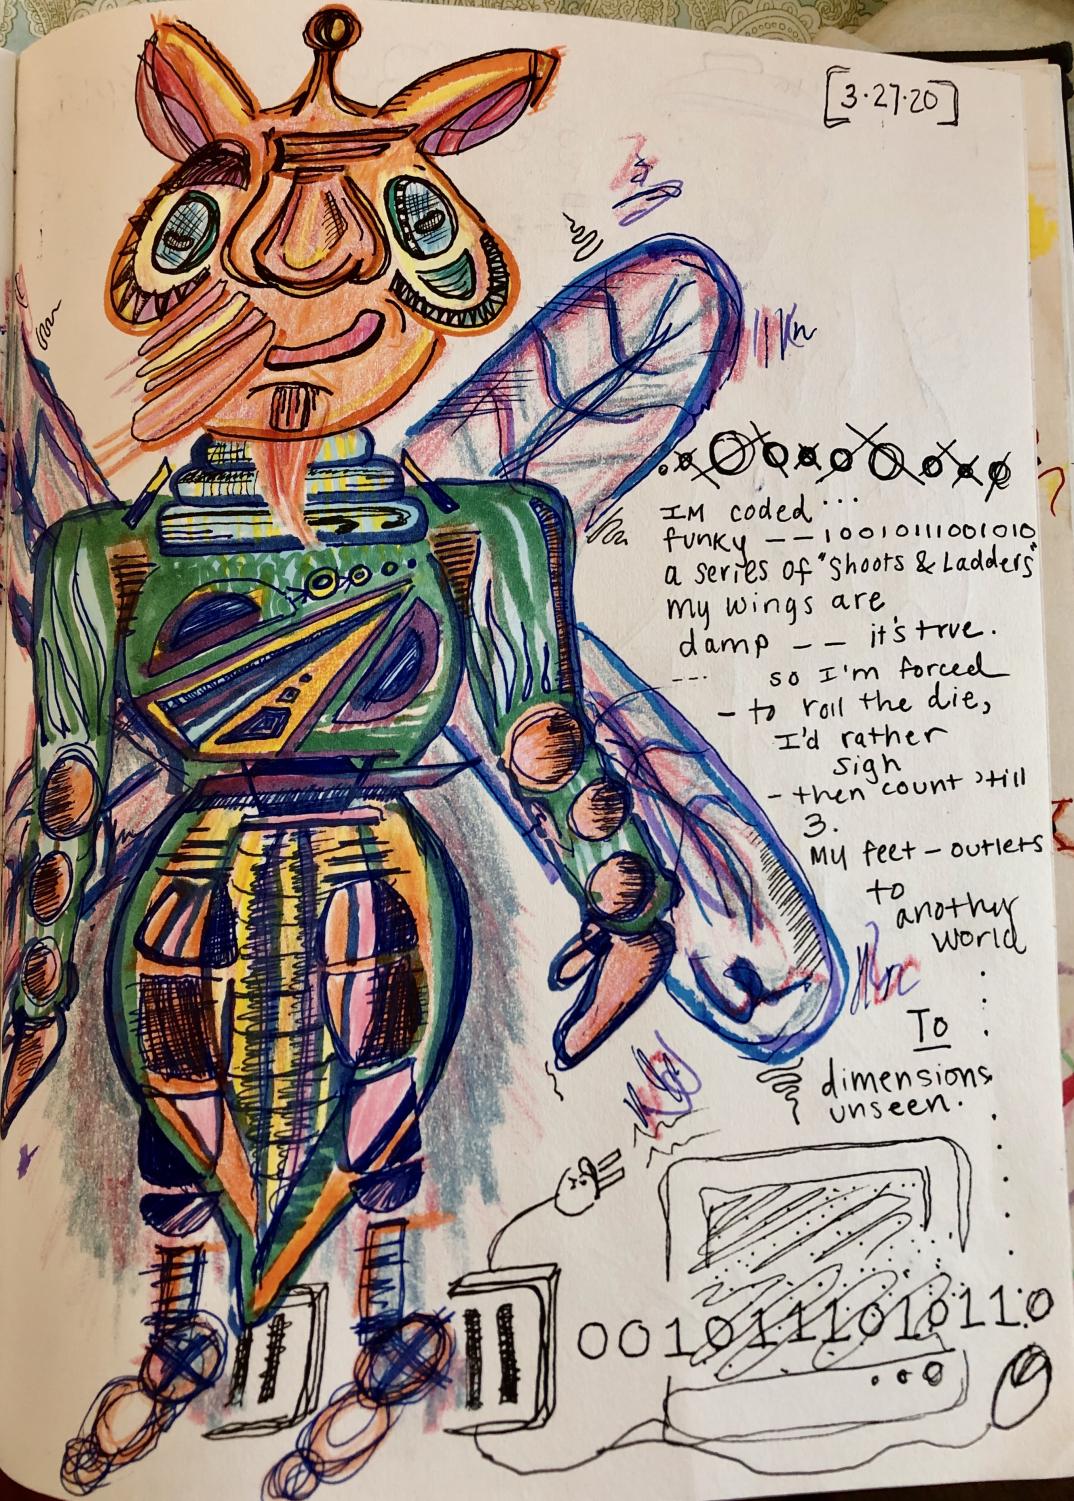 [3.27.20]
IM coded ...
funky -- 1001011100101O
a series of "Shoots & Ladders"
my wings are
damp -- it's true.
--- so I'm forced
- to roll the die,
I'd rather
sigh
- then count 'till
3.
My feet - outlets
to
another
world
To
dimensions
unseen.
0010111010110